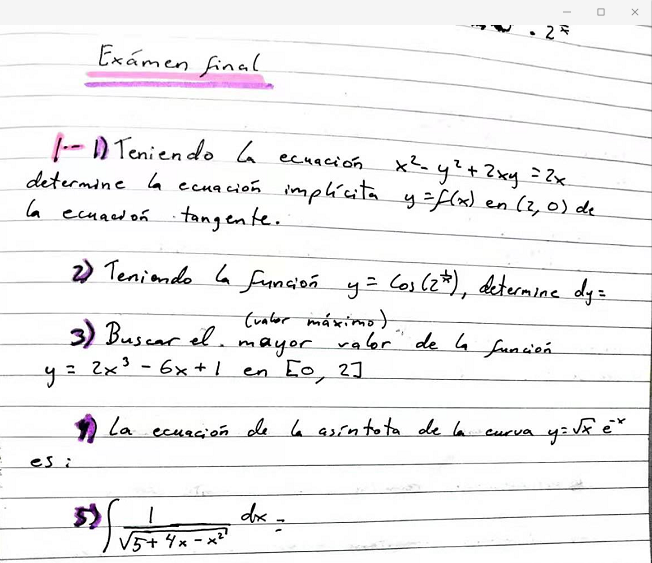 Exámen final
1-- 1) Teniendo la ecuación x² - y² + 2xy = 2x
determine la ecuación implícita y = f(x) en (2, 0) de
la ecuación tangente.
2) Teniendo la función y = Cos(2^(1/x)), determine dy=
(valor máximo)
3) Buscar el mayor valor de la función
y = 2x³ - 6x + 1 en [0, 2]
4) La ecuación de la asíntota de la curva y = √x e^-x
es:
5) ∫ 1/√(5 + 4x - x²) dx =